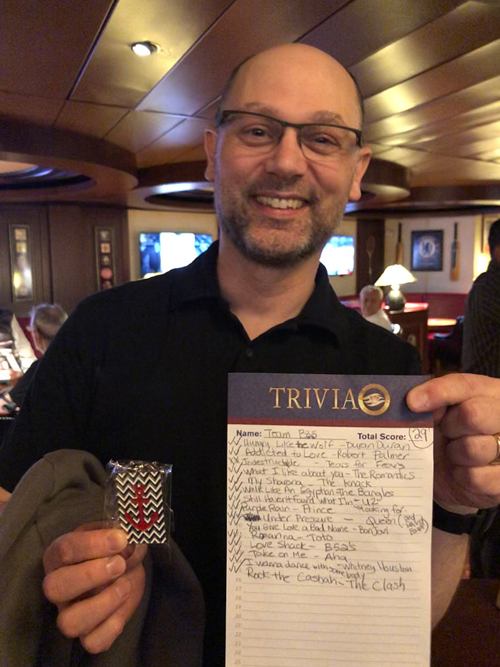 TRIVIA
Name: Team B52s Total Score: 29
Hungry Like the Wolf - Duran Duran
Addicted to Love - Robert Palmer
- Tears for Fears
What I like about you - The Romantics
My Sharona - The Knack
Walk Like An Egyptian The Bangles
Still Haven't found What I'm - U2 looking for
Purple Rain - Prince
Under Pressure - Queen (and David Bowie)
You Give Love a Bad Name - Bon Jovi
Romanna - Toto
Love Shack - B52's
Take on Me - Aha
I wanna dance with somebody - Whitney Houston
Rock the Casbah - The Clash